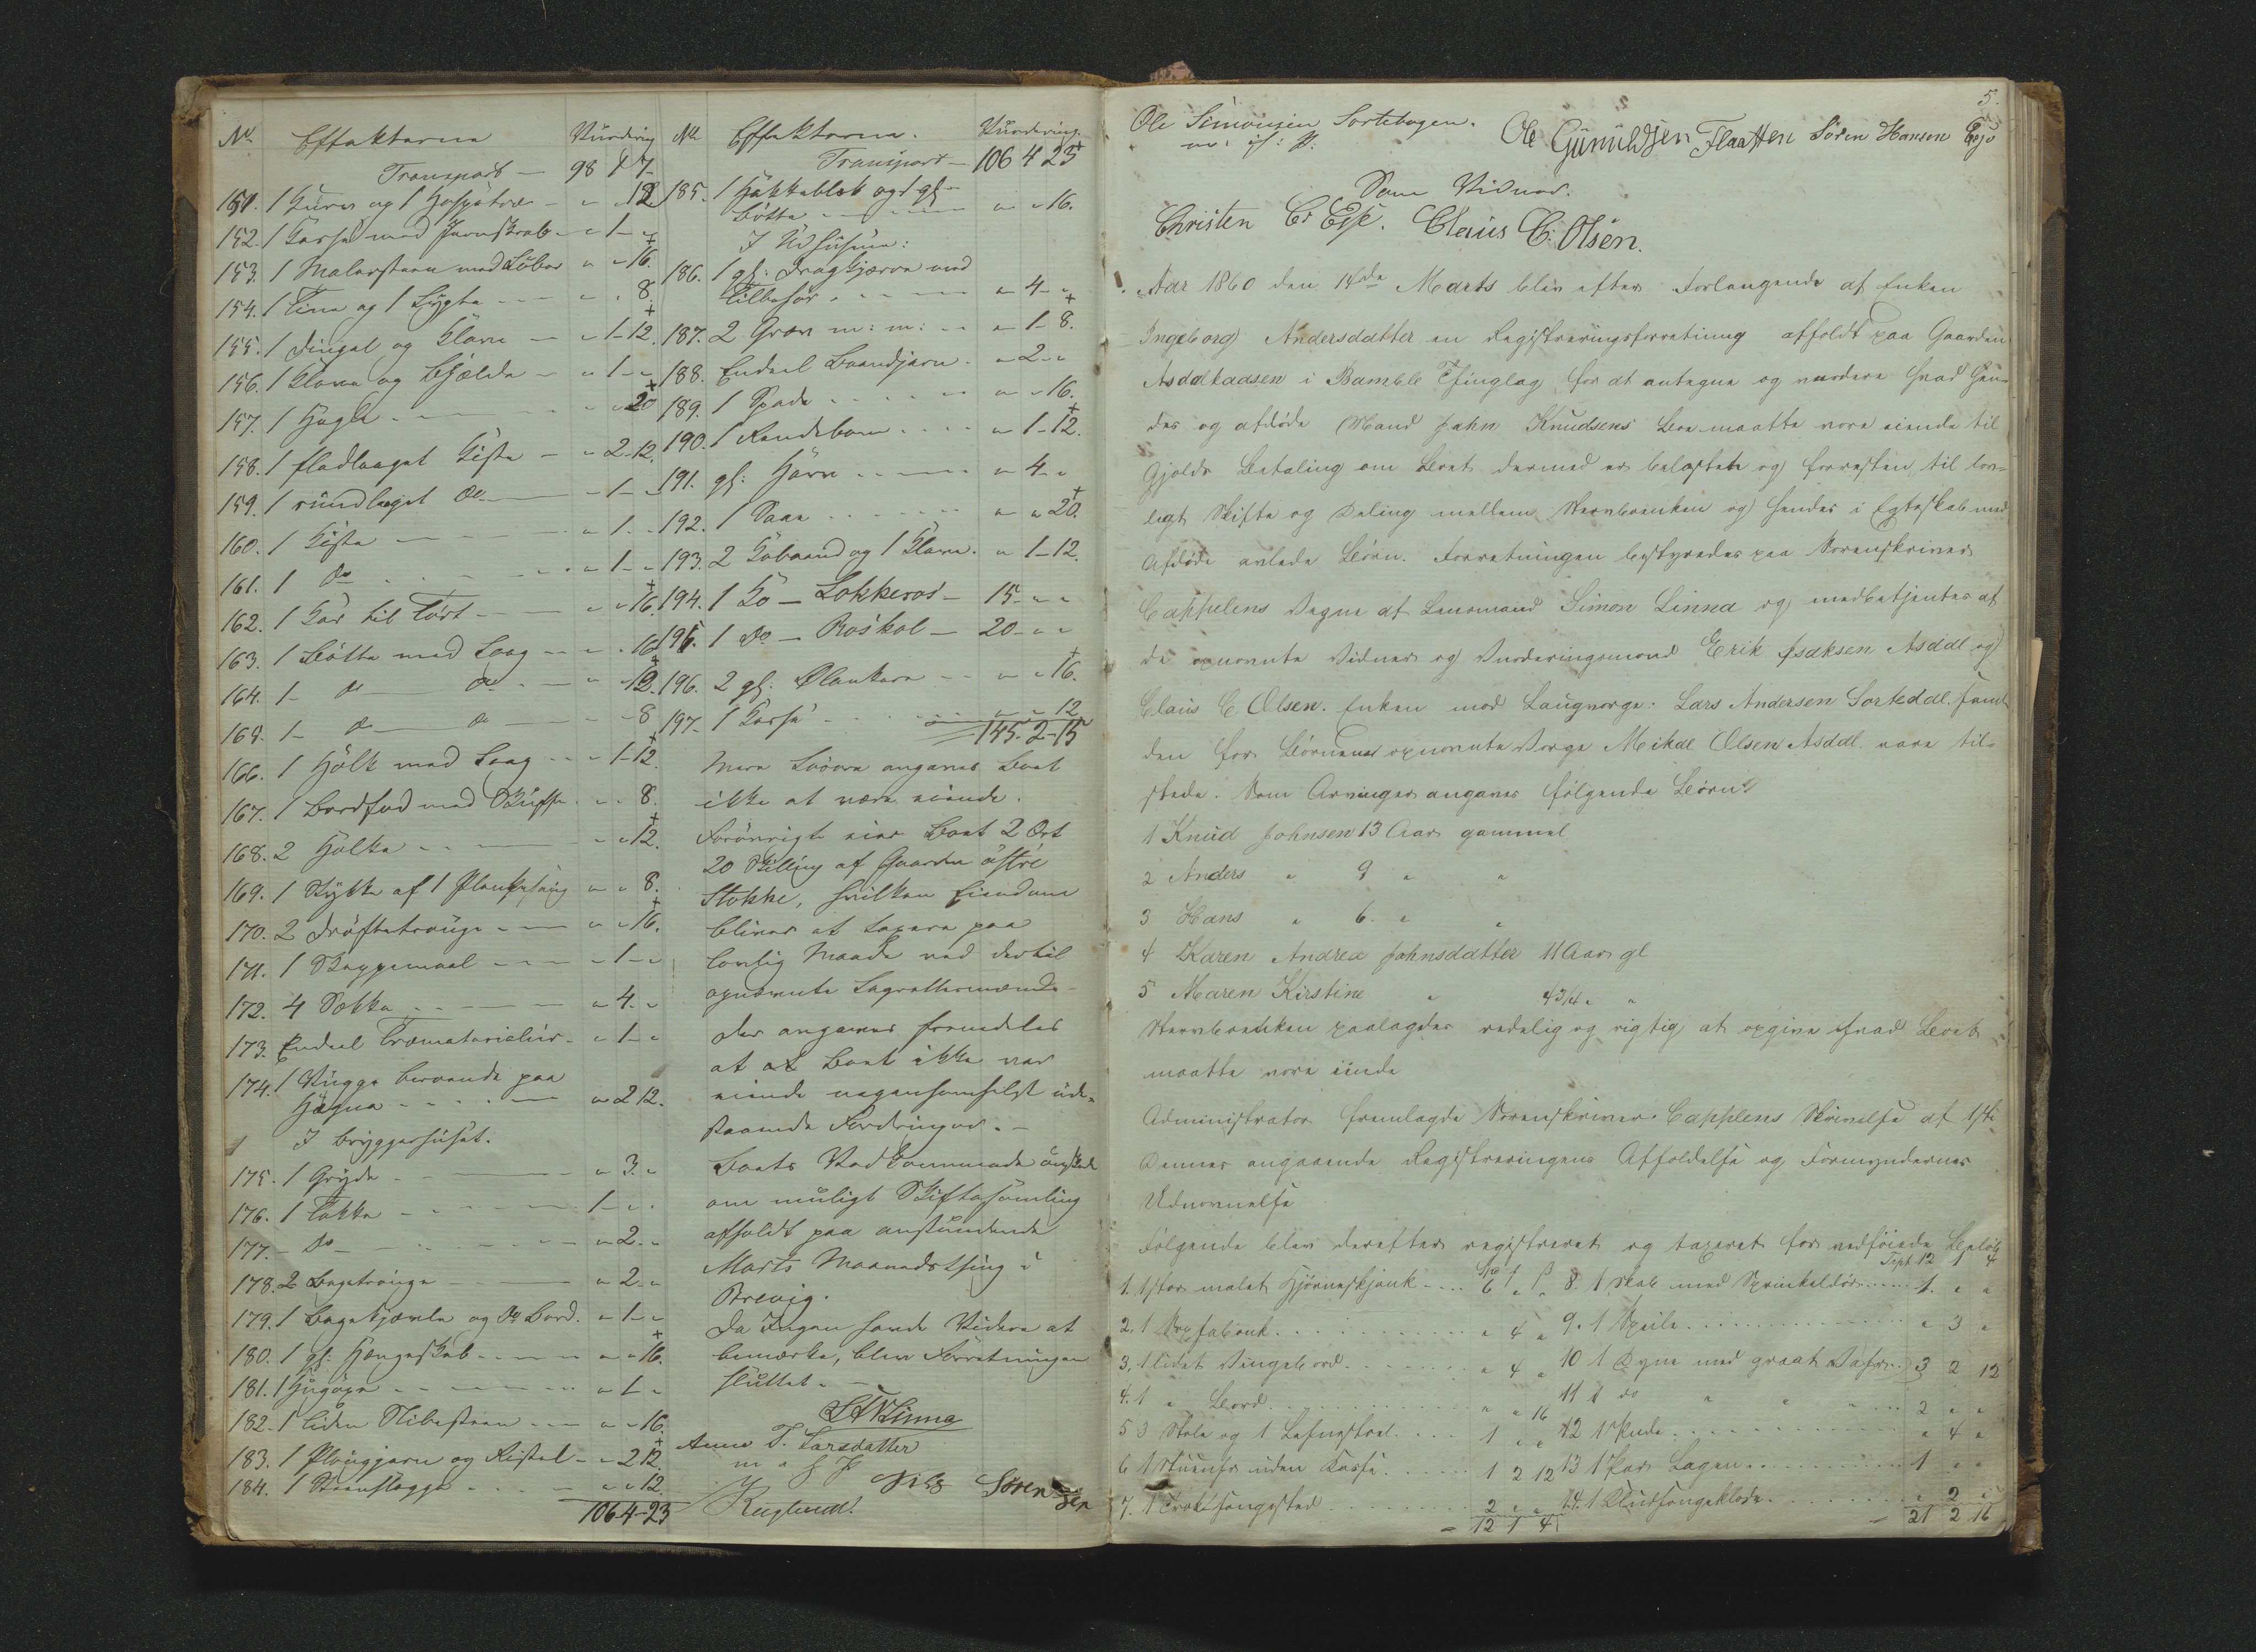 No. Effekterne Vurdering
Transport — 98 1 7
151. 1 Kurv og 1 Haspetræ - " " 12
152. 1 Kasse med Jernskrab - " 1 - "
153. 1 Malersteen med Løber " " 16.
154. 1 Tine og 1 Løgte - - - " " 8.
155. 1 Dingel og Klave — " 1 - 12.
156. 1 Klave og Bjelde - " 1 - "
157. 1 Hagle - - - " " 20
158. 1 fladlaaget Kiste - " 2 - 12.
159. 1 rundlaaget do — " 1 - "
160. 1 Kiste — " 1 - "
161. 1 do - - - " 1 - "
162. 1 Kar til Tørt - - " " 16.
163. 1 Bøtte med Laag - - " " 16
164. 1 - do - do - " " 12.
165. 1 - do - do — " " 8
166. 1 Hølk med Laag - - " 1 - 12.
167. 1 Bordfod med Skuffe. " " 8.
168. 2 Hølke - - — " " 12.
169. 1 Stykke af 1 Plankesaug " " 8.
170. 2 Drøftetrouge - - - " " 16.
171. 1 Skjeppemaal - - - " 1 - "
172. 4 Sække - - — " 4 - "
173. Endeel Træmaterialier - " 1 - "
174. 1 Vugge beroende paa
Høgna - - - - " 2 12.
I Bryggerhuset.
175. 1 Gryde - — " 3 - "
176. 1 Takke - - - - 1 - " -
177. - do - - - - " 2 - "
178. 2 Bagetrouge — " 2 - "
179. 1 Bagekjævle og do Bord. " 1 - "
180. 1 gl: Hængeskab - - - " " 16.
181. 1 Hugøxe - - - - " 1 - "
182. 1 liden Slibesteen - - - " " 16.
183. 1 Plougjern og Ristel - - " 2 12.
184. 1 Steenslægge - - - — " " 12.
106 4 - 23
No. Effekterne. Vurdering.
Transport — 106 4 23
185. 1 Hakkeblok og 1 gl -
Bøtte - - - - " " 16.
I Udhusene:
186. 1 gl: Dragkjærre med
Tilbehør. - - — " 4 - "
187. 2 Greve m: m: - - " 1 - 8.
188. Endeel Baandjern. " 2 - "
189. 1 Spade - - - - " " 16.
190. 1 Rendebom - - - - " 1 - 12.
191. gl: Harve - - — " 4 - "
192. 1 Saae - - - - - " " 20.
193. 2 Kobaand og 1 Klave. " 1 - 12.
194. 1 Ko — Lokkeros — 15 - " "
195. 1 do — Roskol — 20 - " "
196. 2 gl: Ølankere - - " " 16.
197. 1 Kasse - - - " " 12
145 - 2 - 15
Mere Løsøre angaves Boet
ikke at være eiende.
Forøvrigt eier Boet 2 Ort
20 Skilling af Gaarden østre
Stokke, hvilken Eiendom
bliver at taxere paa
lovlig Maade ved dertil
opnævnte Lagrettesmænd -
Der angaves fremdeles
at at Boet ikke var
eiende nogensomhelst ude-
staaende Fordringer. -
Boets Vedkommende ønskede
om muligt Skiftesamling
afholdt paa anstundende
Marts Maanedsthing i
Brevig.
Da Ingen havde Videre at
bemærke, blev Forretningen
sluttet. -
S. A. Linna
Anne T. Larsdatter
m f P
Nils Sørensen
Røglund.
5.
Ole Simonsen Sortebogen. Ole Gunuldsen Flaatten Søren Hansen Eejø
m: f: P:
Som Vidner.
Christen Cr Eeg. Claus C: Olsen.
Aar 1860 den 14de Marts blev efter Forlangende af Enken
Ingeborg Andersdatter en Registreringsforretning afholdt paa Gaarden
Asdalkaasen i Bamble Thinglag for at antegne og vurdere hvad hen-
des og afdøde Mand Jahn Knudsens Boe maatte være eiende til
Gjelds Betaling om Boet dermed er belastet og forresten til lov-
ligt Skifte og Deling mellem Stervboenken og hendes i Egteskab med
Afdøde avlede Børn. Forretningen bestyredes paa Sorenskriver
Cappelens Vegne af Lensmand Simon Linna og medbetjentes af
de opnevnte Vidner og Vurderingsmænd Erik Isaksen Asdal og
Claus C Olsen. Enken med Laugverge: Lars Andersen Sortedal samt
den for Børnene opnevnte Verge Mikal Olsen Asdal vare til-
stede. Som Arvinger angaves følgende Børn:
1 Knud Johnsen 13 Aar gammel
2 Anders " 9 " "
3 Hans " 6 " "
4 Karen Andrea Johnsdatter 11 Aar gl
5 Maren Kirstine " 4 3/4 " "
Stervboenken paalagdes redelig og rigtig at opgive hvad Boet
maatte være eiende
Administrator fremlagde Sorenskriver Cappelens Skrivelse af 1ste
Dennes angaaende Registreringens Afholdelse og Formyndernes
Udnevnelse
Følgende blev derefter registreret og taxeret for vedføiede Beløb
Spd Trspt 12 1 4
1. 1 stor malet Hjørneskjænk - - - 6 " "
2. 1 Sopfabænk - - - " 4 "
3. 1 lidet Vingebord - - - " 4 "
4. 1 " Bord - - - " " 16
5 3 Stole og 1 Lehnestoel - - - 1 " "
6 1 Stueuhr uden Kasse - - - 1 2 12
7. 1 Træksengested - - - 2 " "
12 1 4
8. 1 Skab med Sprinkeldør - - - 1 " "
9. 1 Speile - - - " 3 "
10 1 Dyne med graat Vahr. 3 2 12
11 1 do " " " - - - 2 " "
12 1 Pude - - - " 4 "
13 1 Par Lagen - - - 1 " "
14. 1 Kludsengeklæde - - - " 2 "
21 2 16